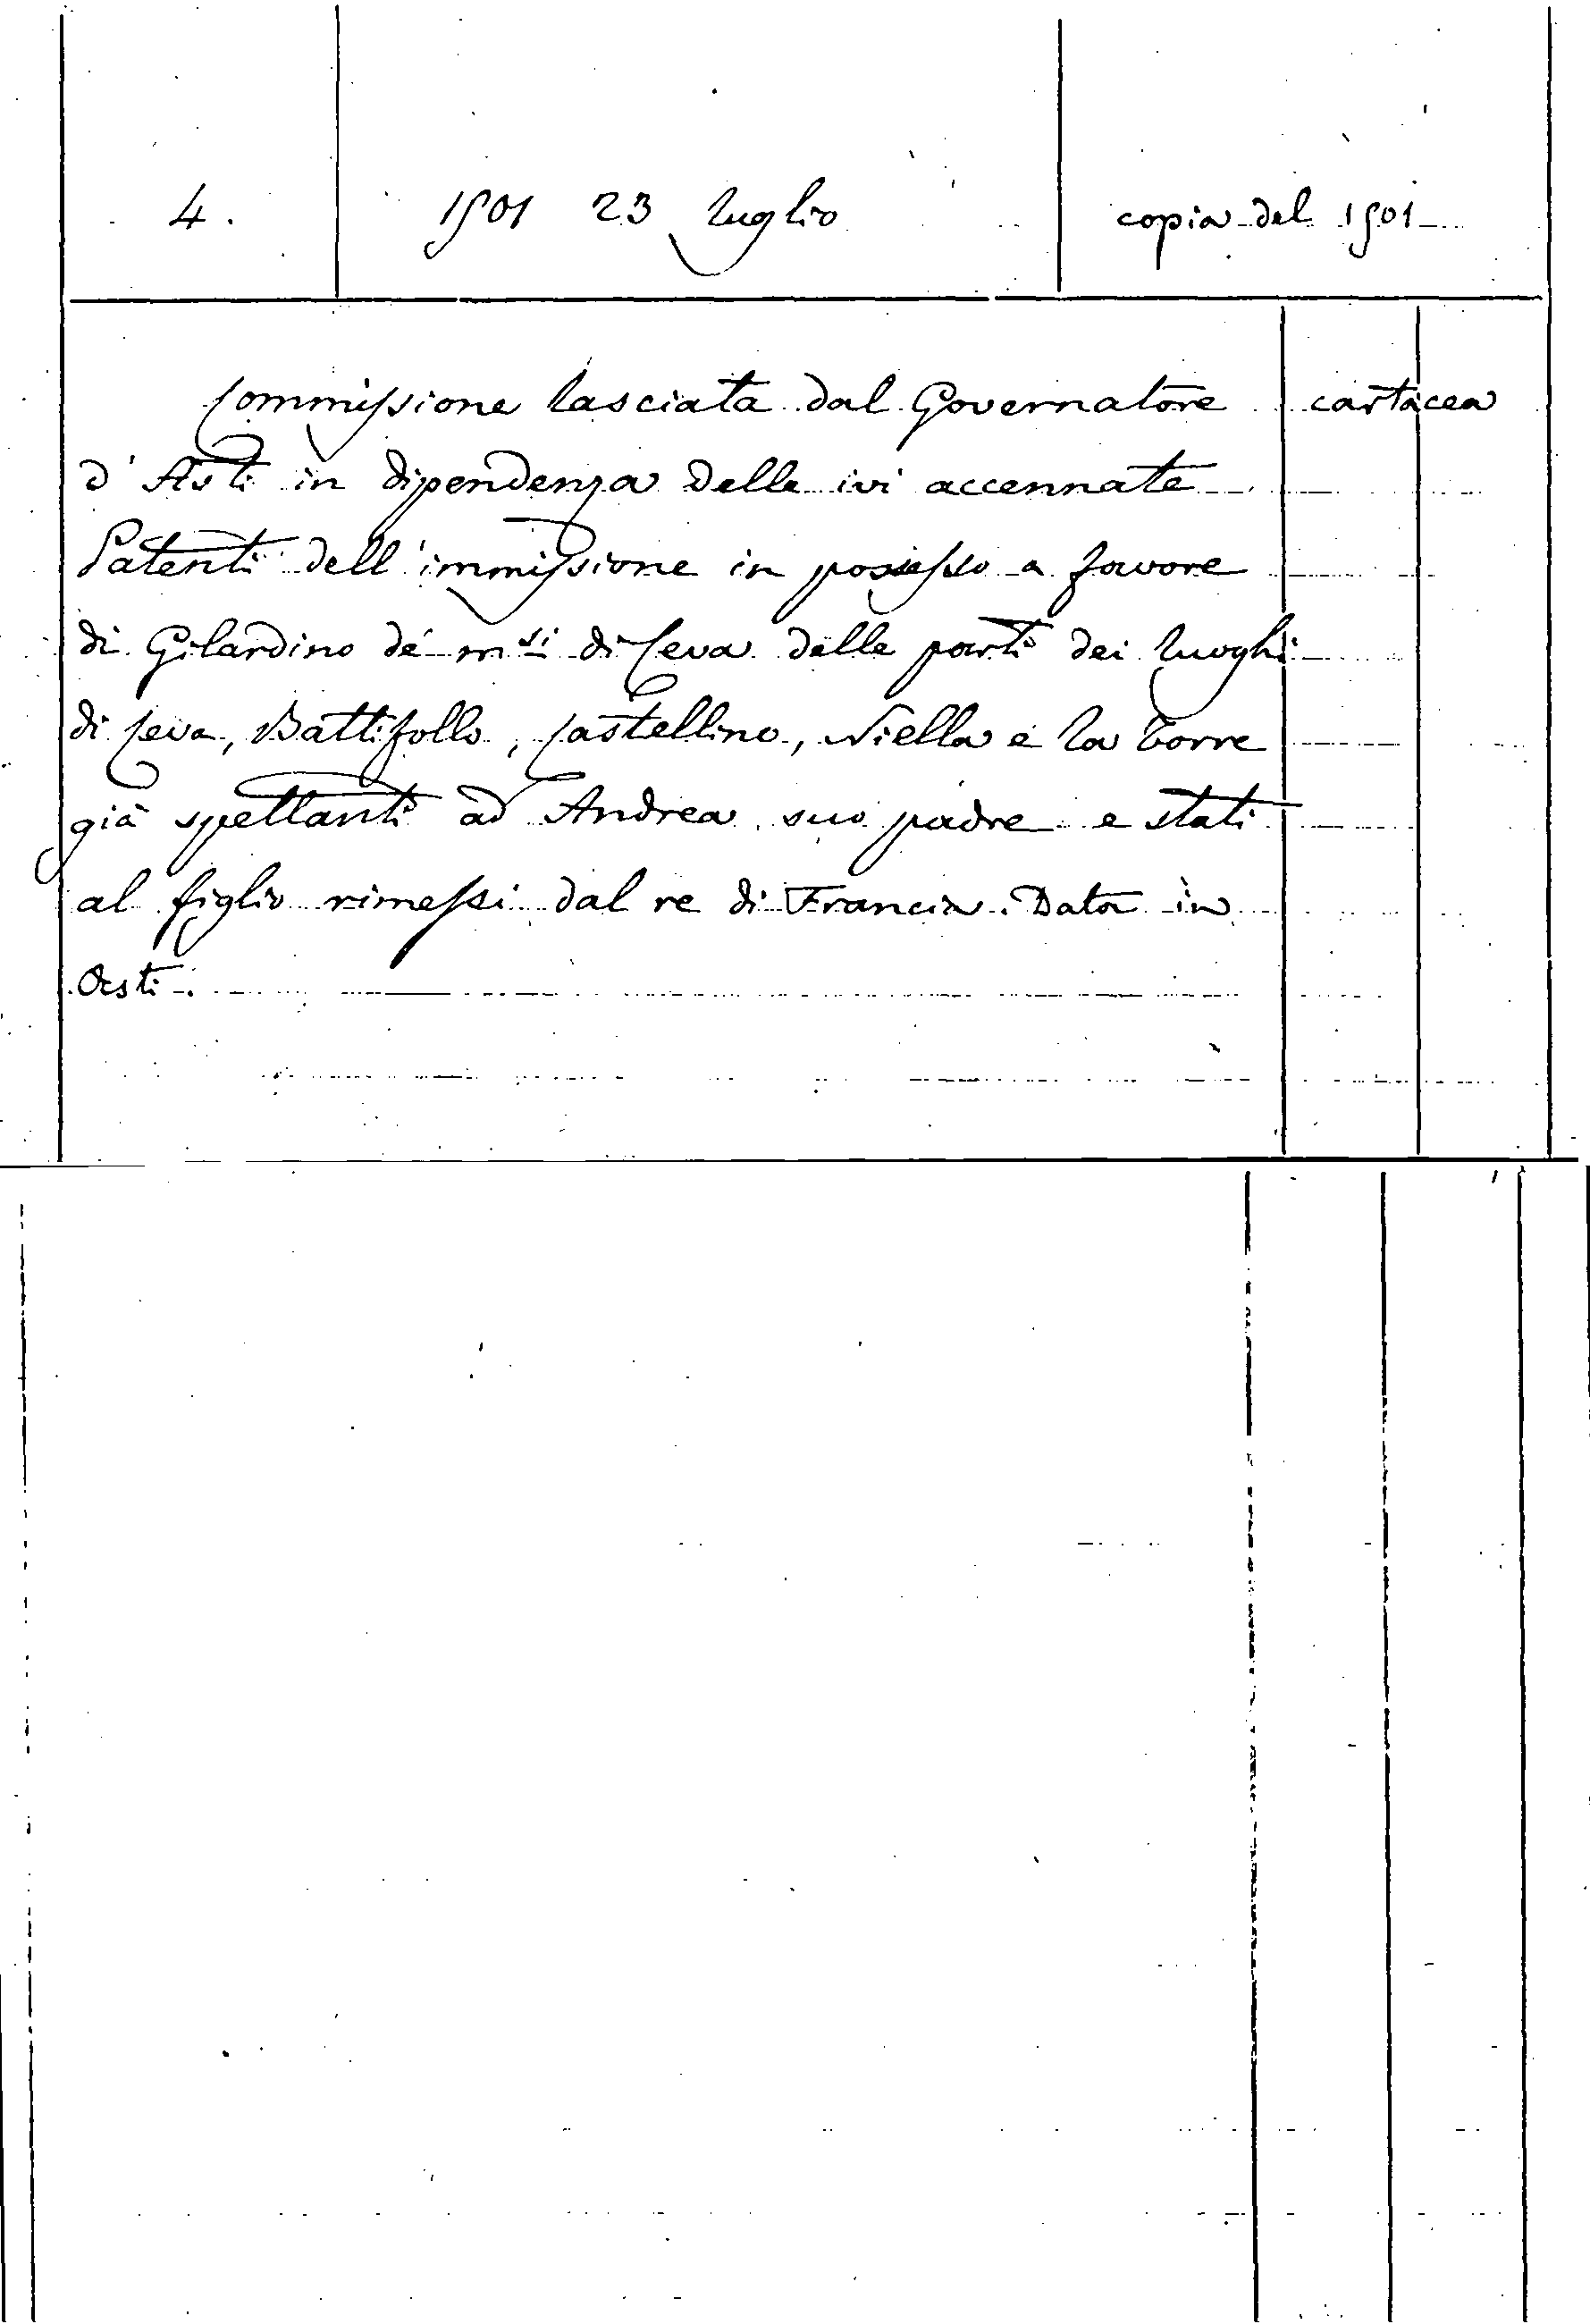 4. 1501 23 luglio copia del 1501
Commissione lasciata dal Governatore cartacea
d'Asti in dipendenza delle ivi accennate
Patenti dell'immissione in possesso a favore
di Gilardino de' m.si di Ceva delle parti dei luoghi
di Ceva, Battifollo, Castellino, Niella e la Torre
già spettanti ad Andrea suo padre e stati
al figlio rimessi dal re di Francia. Data in
Asti.